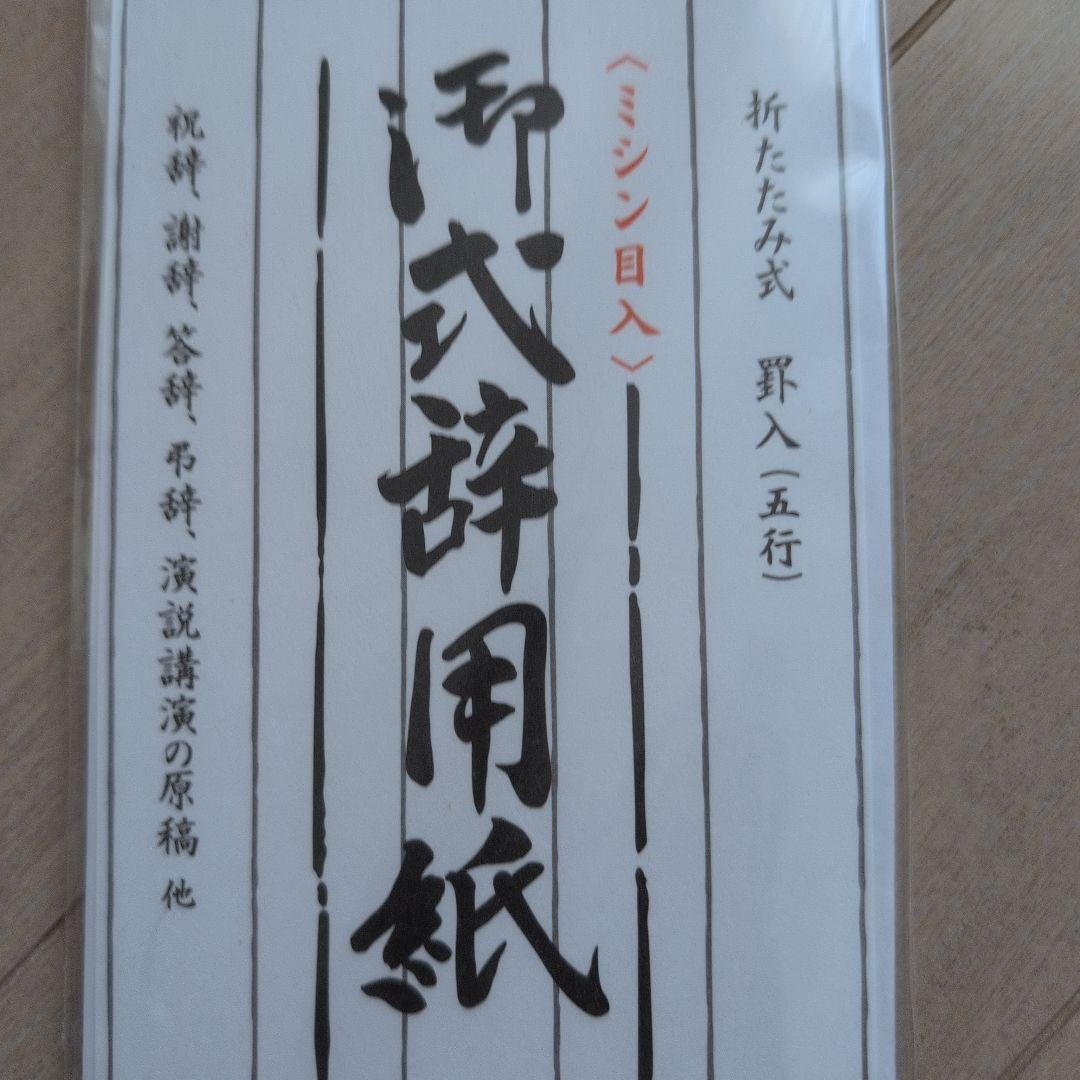 折たたみ式　罫入（五行）
〈ミシン目入〉
御式辞用紙
祝辞、謝辞、答辞、弔辞、演説講演の原稿 他